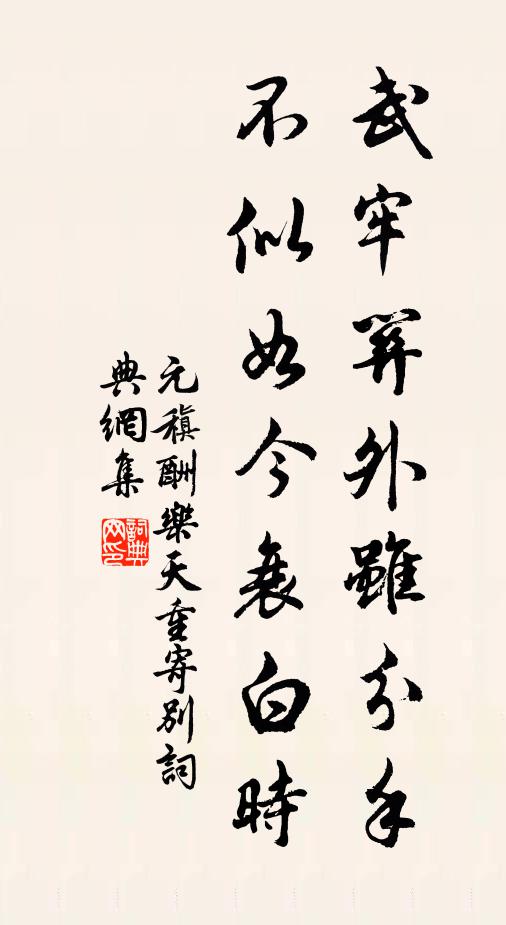 武牢關外雖分手
不似如今衰白時
元稹酬樂天重寄別詞
典網集
詞典
网印